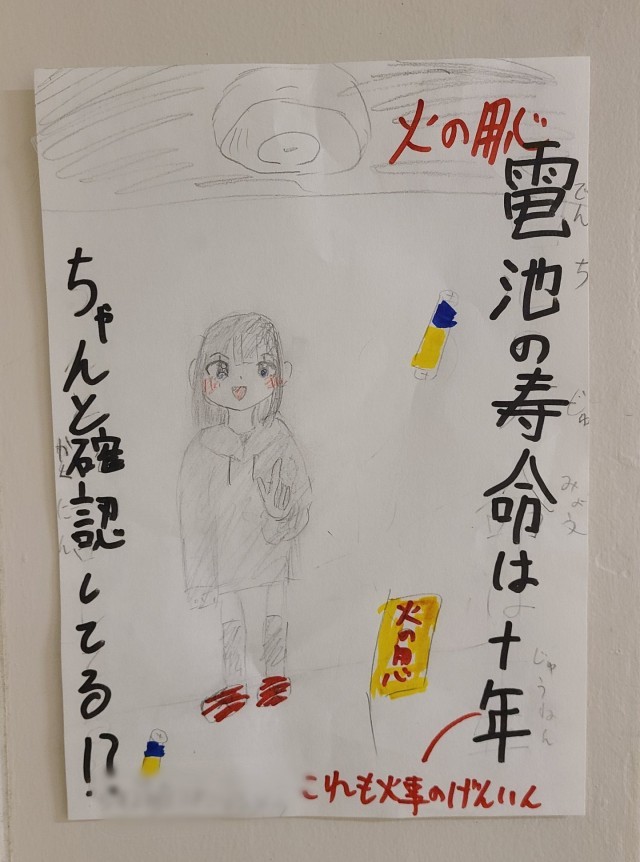 火の用心
電池の寿命は十年
でんち
じゅみょう
じゅうねん
ちゃんと確認してる!?
かくにん
火の用心
これも火事のげんいん